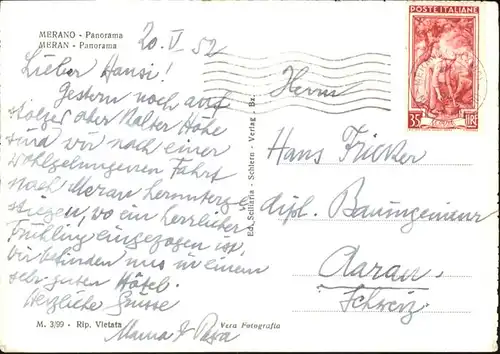 MERANO - Panorama
MERAN - Panorama
20. V. 52
Lieber Hansi!
Gestern noch auf
stolzer aber kalter Höhe
sind wir nach einer
wohlgelungenen Fahrt
nach Meran herunterge-
stiegen, wo ein herrlicher
Frühling eingezogen ist.
Wir befinden uns in einem
sehr guten Hotel.
Herzliche Grüsse
Mama & Papa
M. 3/99 - Rip. Vietata
Vera Fotografia
Ed. Sciliaria - Schlern - Verlag - Bz.
POSTE ITALIANE
35 LIRE
Herrn
Hans Fricker
dipl. Bauingenieur
Aarau
Schweiz